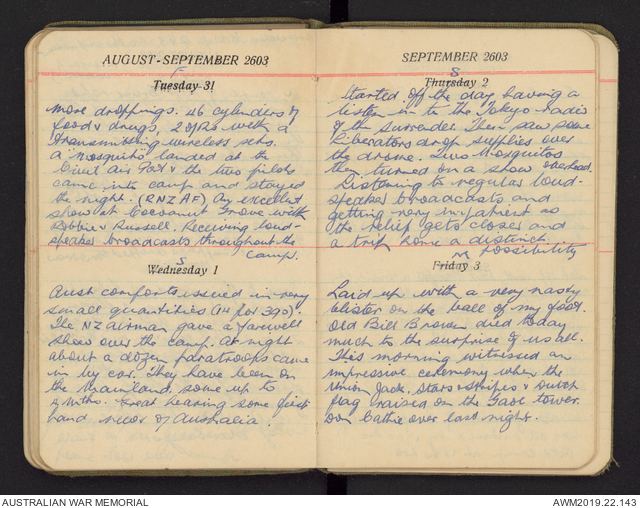 AUGUST-SEPTEMBER 2603
F
Tuesday 31
More droppings. 46 cylinders of
food & drugs, 2 ORs with a
transmitting wireless sets.
A Mosquito landed at the
Civil Air Port & the two pilots
came into camp and stayed
the night. (RNZAF) An excellent
show at Cocoanut Grove with
Bobbie & Russell. Receiving loud-
speaker broadcasts throughout the
camp.
S
Wednesday 1
Aust comforts issued in very
small quantities (14 for 390).
The NZ airman gave a farewell
show over the camp. At night
about a dozen paratroops came
in by car. They have been on
the mainland some up to
2 mths. Great hearing some first
hand news of Australia.
SEPTEMBER 2603
S
Thursday 2
Started off the day having a
listen in to the Tokyo radio
of the surrender. Then saw some
Liberators drop supplies over
the drome. Two Mosquitos
then turned on a show overhead.
Listening to regular loud-
speaker broadcasts and
getting very impatient as
the relief gets closer and
a trip home a distinct
possibility
M
Friday 3
Laid up with a very nasty
blister on the ball of my foot.
Old Bill Brown died today
much to the surprise of us all.
This morning witnessed an
impressive ceremony when the
Union Jack, Stars & Stripes & Dutch
flag raised on the Gaol tower.
Don Cathie over last night.
AUSTRALIAN WAR MEMORIAL
AWM2019.22.143